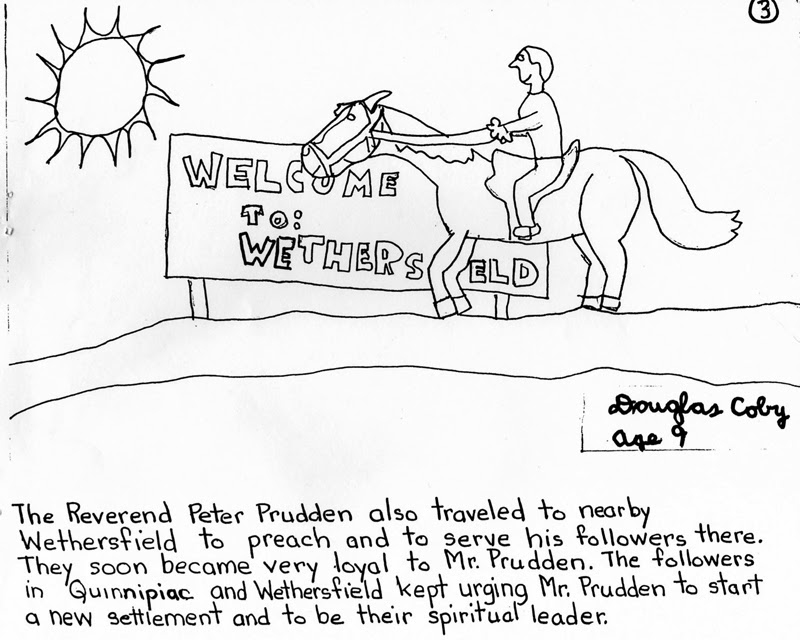 3
WELCOME
TO:
WETHERS ELD
Douglas Coby
age 9
The Reverend Peter Prudden also traveled to nearby
Wethersfield to preach and to serve his followers there.
They soon became very loyal to Mr. Prudden. The followers
in Quinnipiac and Wethersfield kept urging Mr. Prudden to start
a new settlement and to be their spiritual leader.